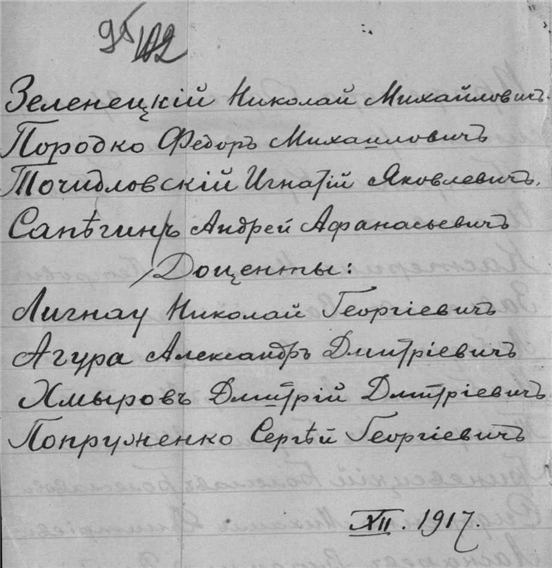 95 102
Зеленецкій Николай Михайловичъ.
Породко Федоръ Михаиловичъ
Точидловскій Игнатій Яковлевичъ.
Сапѣгинъ Андрей Афанасьевичъ
Доценты:
Лигнау Николай Георгіевичъ
Агура Александръ Дмитріевичъ
Хмыровъ Дмитрій Дмитріевичъ
Попруженко Сергѣй Георгіевичъ
XII. 1917.